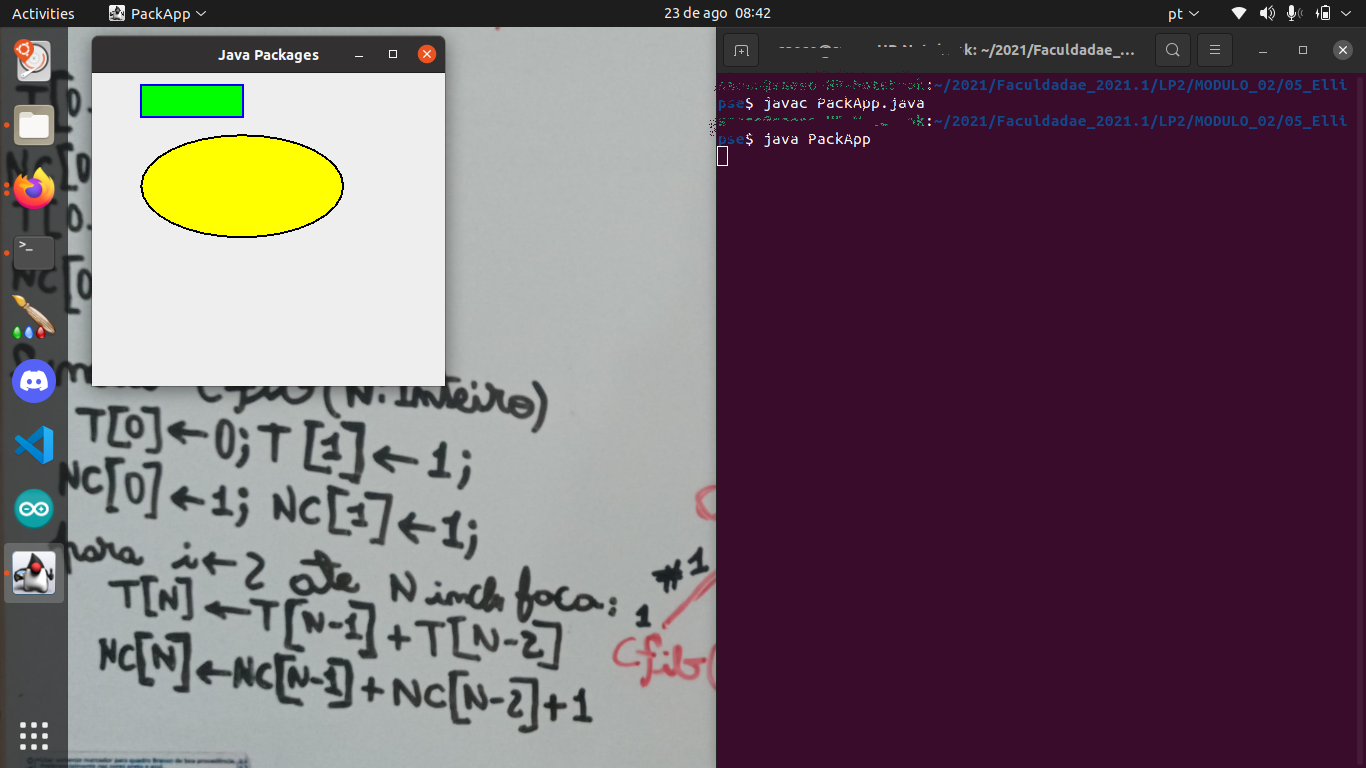 Activities PackApp 23 de ago 08:42 pt
Java Packages
k: ~/2021/Faculdadae_...
:~/2021/Faculdadae_2021.1/LP2/MODULO_02/05_Elli
pse$ javac PackApp.java
k:~/2021/Faculdadae_2021.1/LP2/MODULO_02/05_Elli
pse$ java PackApp
(N:Inteiro)
T[0]←0; T[1]←1;
NC[0]←1; NC[1]←1;
para i←2 ate N inch faca:
T[N]←T[N-1]+T[N-2]
NC[N]←NC[N-1]+NC[N-2]+1
#1
1
Cfib(